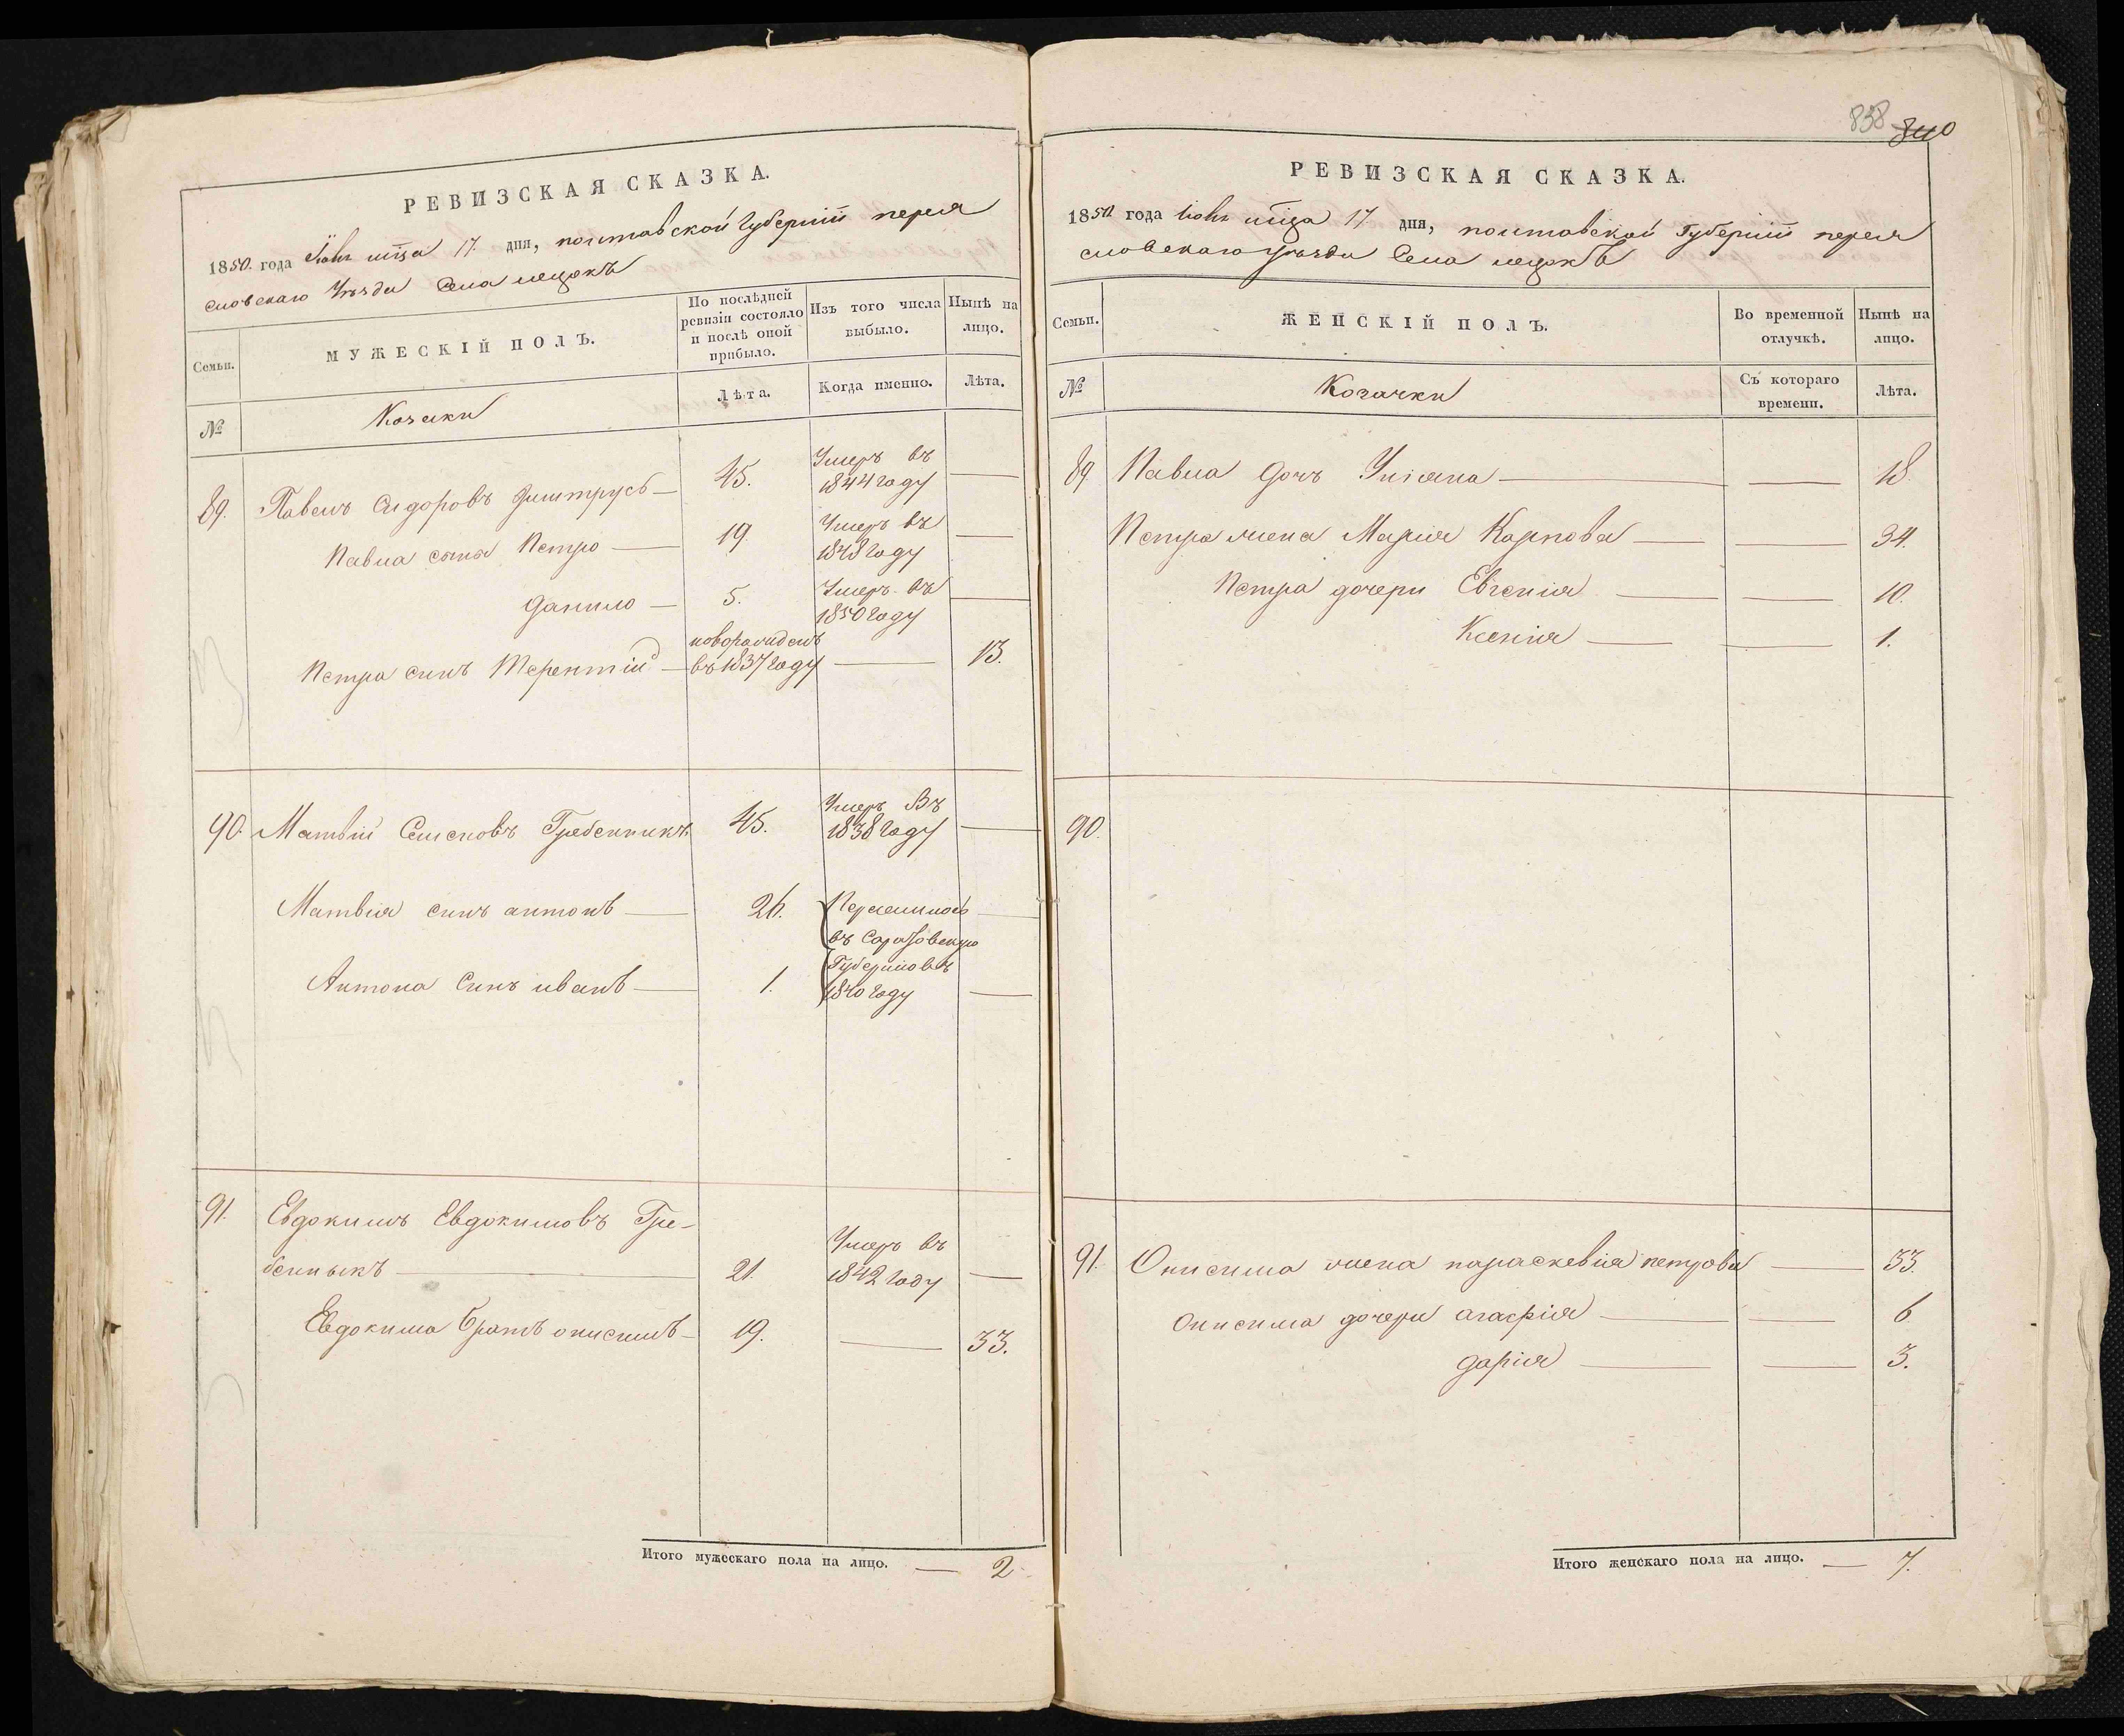 РЕВИЗСКАЯ СКАЗКА.
1850. года Іюня мца 17. дня, полтавской Губерніи перея
словскаго Уезда Села лецокъ
Семьи.
МУЖЕСКІЙ ПОЛЪ.
По послѣдней
ревизіи состояло
и послѣ оной
прибыло.
Изъ того числа
выбыло.
Нынѣ на
лицо.
№
Козаки
Лѣта.
Когда именно.
Лѣта.
89. Павелъ Сидоровъ 45. Умеръ въ
1844 году
Павла сыны Петро 19. Умеръ въ
1848 году
Данило 5. Умеръ въ
1850 году
Петра синъ Терентій новорожденъ
въ 1837 году 13.
90. Матвій Семеновъ Гребенникъ 45. Умеръ Въ
1838 году
Матвія синъ антонъ 26. Переселилось
въ Саратовскую
Губернію въ
1840 году
Антона Синъ иванъ 1.
91. Евдокимъ Евдокимовъ Гре-
бенныкъ 21. Умеръ въ
1842 году
Евдокима братъ онисимъ 19. 33.
Итого мужескаго пола на лицо. 2
838 840
РЕВИЗСКАЯ СКАЗКА.
1850 года Іюня мца 17 дня, полтавской Губерніи перея
словскаго уезда Села лецокъ
Семьи.
ЖЕНСКІЙ ПОЛЪ.
Во временной
отлучкѣ.
Нынѣ на
лицо.
№
Козачки
Съ котораго
времени.
Лѣта.
89. Павла Дочъ Уліяна 18.
Петра жена Марія Карпова 34.
Петра дочери Евгенія 10.
Ксенія 1.
90.
91. Онисима жена параскевія петрова 33.
Онисима дочери агафія 6
Дарія 3.
Итого женскаго пола на лицо. 7.